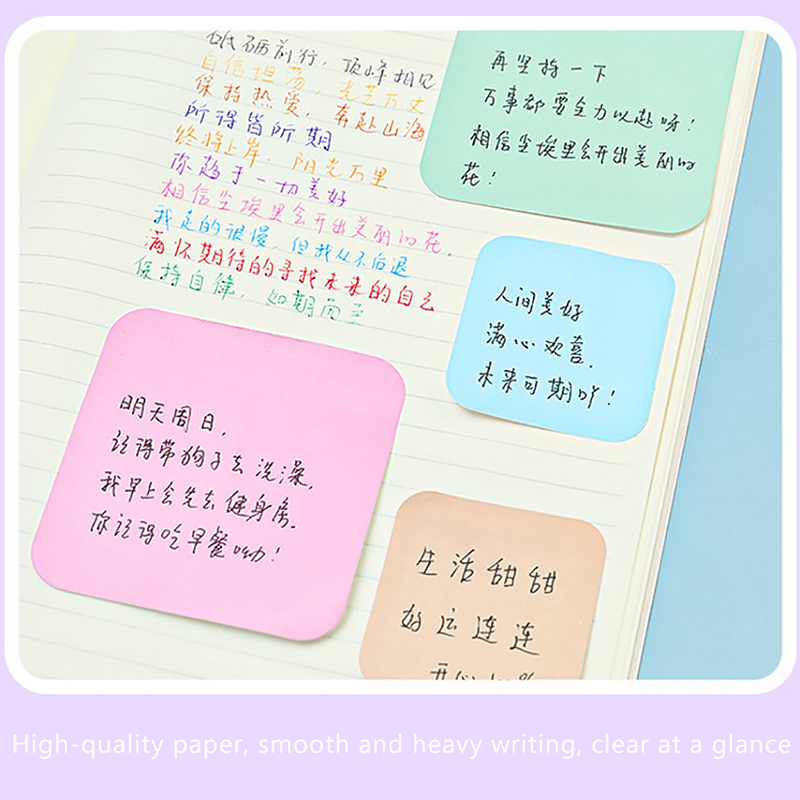 砥砺前行，顶峰相见
自信坦荡，光芒万丈
保持热爱，奔赴山海
所得皆所期
终将上岸，阳光万里
你趋于一切美好
相信尘埃里会开出美丽的花，
我走的很慢，但我从不后退
满怀期待的寻找未来的自己
保持自律，如期而至
再坚持一下
万事都要全力以赴呀！
相信尘埃里会开出美丽的
花！
人间美好
满心欢喜，
未来可期吖！
明天周日，
记得带狗子去洗澡，
我早上会先去健身房。
你记得吃早餐呦！
生活甜甜
好运连连
开心
High-quality paper, smooth and heavy writing, clear at a glance